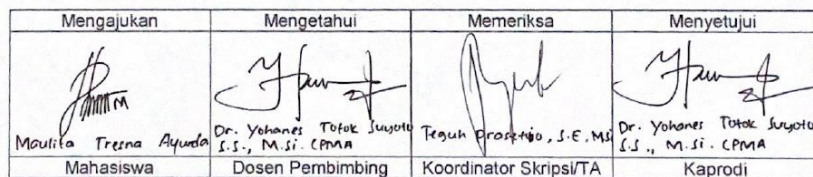 Mengajukan Mengetahui Memeriksa Menyetujui
Maulita Tresna Ayunda Dr. Yohanes Totok Suyoto Teguh Prasetyo, S.E, MSi Dr. Yohanes Totok Suyoto
S.S., M.Si. CPMA S.S., M.Si. CPMA
Mahasiswa Dosen Pembimbing Koordinator Skripsi/TA Kaprodi